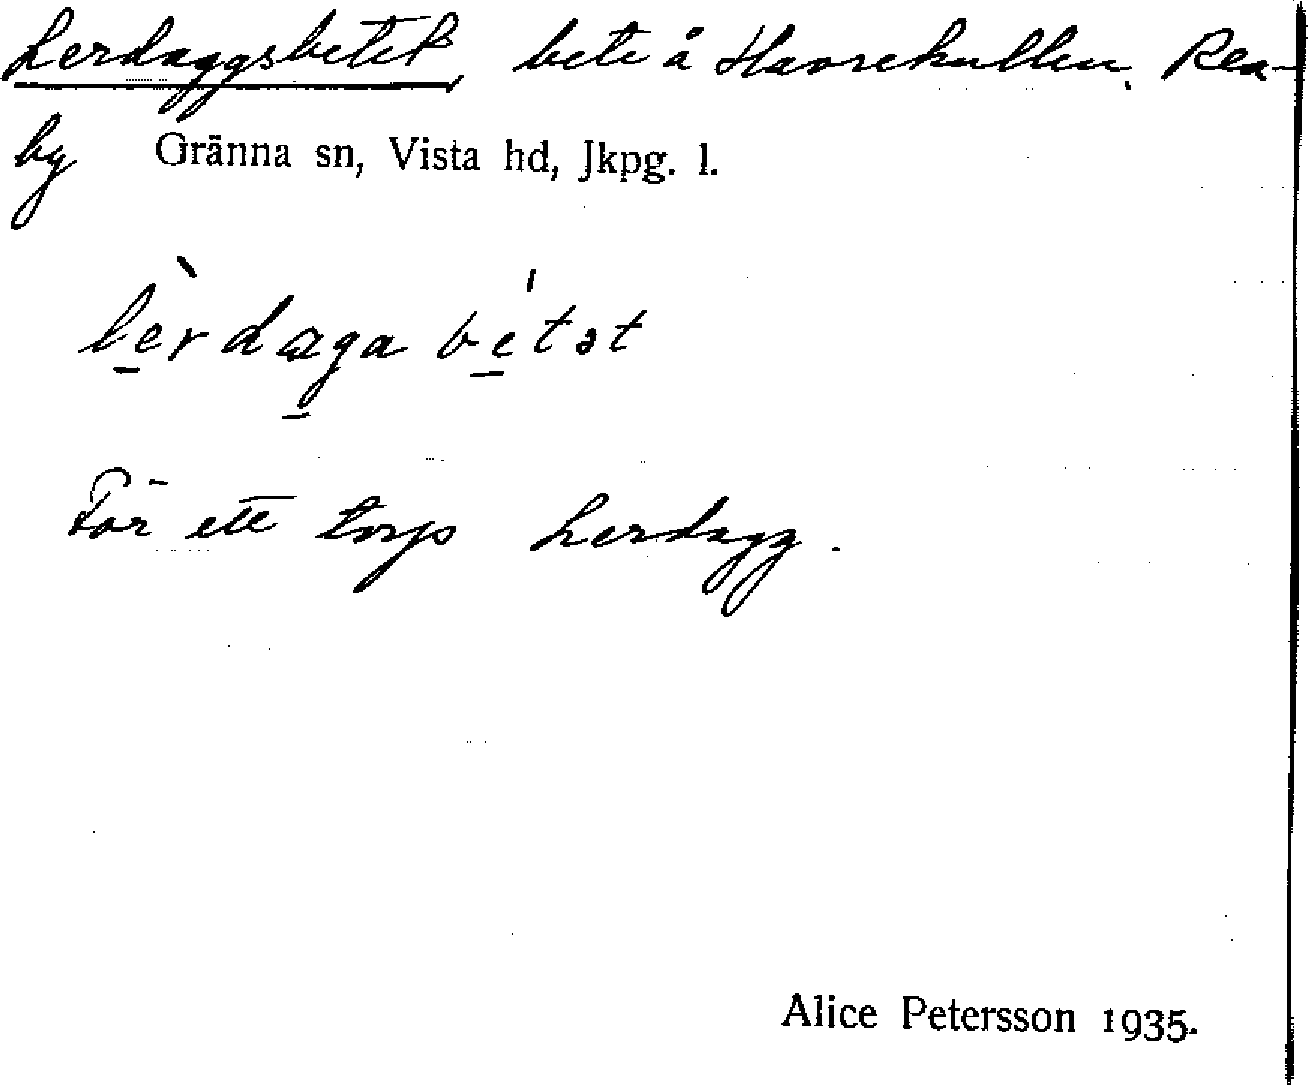 Lerdaggsbetet, bete å Havrekullen, Rea-
by Gränna sn, Vista hd, Jkpg. l.
lèrdæga bétət
För ett torp Lerdagg.
Alice Petersson 1935.